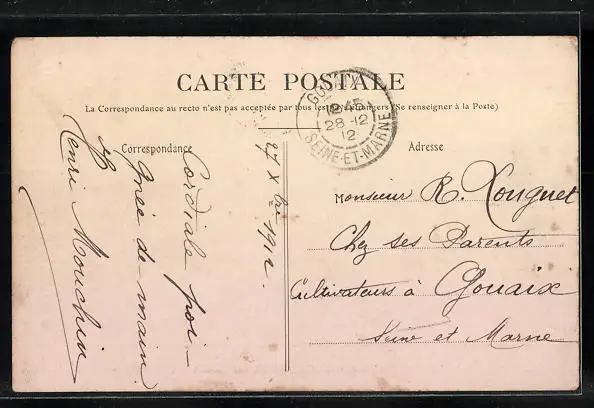 CARTE POSTALE
La Correspondance au recto n'est pas acceptée par tous les pays étrangers (Se renseigner à la Poste)
GOUAIX
12 45
28-12
12
SEINE-ET-MARNE
Correspondance
Adresse
27 Xbre 1912
Cordiale poi-
gnée de main
Henri Mouchin
Monsieur R. Longuet
Chez ses Parents
Cultivateurs à Gouaix
Seine et Marne